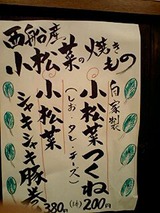 西船産
小松菜の焼きもの
自家製
小松菜つくね
(しお・タレ・チーズ)
(1本)200円
小松菜
シャキシャキ豚巻
380円